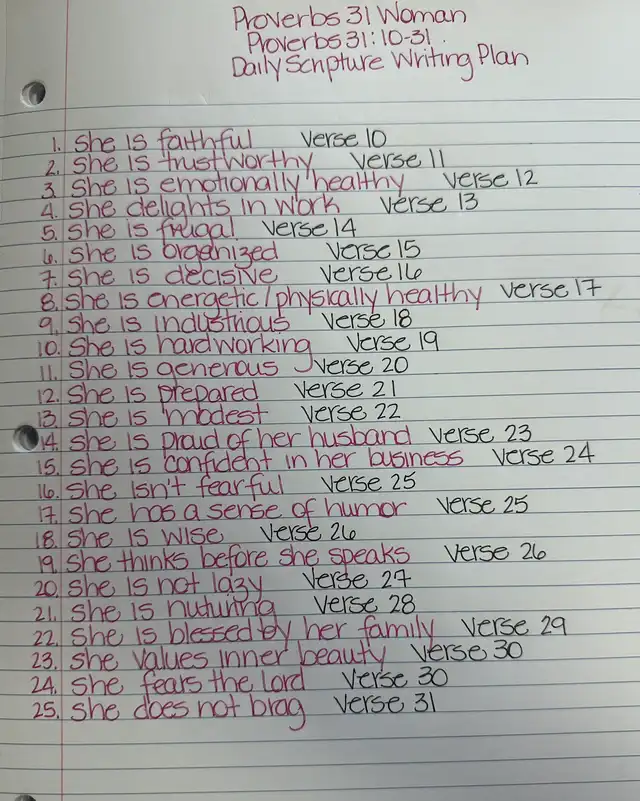 Proverbs 31 Woman
Proverbs 31:10-31.
Daily Scripture Writing Plan
1. She is faithful Verse 10
2. She is trustworthy Verse 11
3. She is emotionally healthy Verse 12
4. She delights in work Verse 13
5. She is frugal Verse 14
6. She is organized Verse 15
7. She is decisive Verse 16
8. She is energetic/physically healthy Verse 17
9. She is industrious Verse 18
10. She is hardworking Verse 19
11. She is generous Verse 20
12. She is prepared Verse 21
13. She is modest Verse 22
14. She is proud of her husband Verse 23
15. She is confident in her business Verse 24
16. She isn't fearful Verse 25
17. She has a sense of humor Verse 25
18. She is wise Verse 26
19. She thinks before she speaks Verse 26
20. She is not lazy Verse 27
21. She is nuturing Verse 28
22. She is blessed by her family Verse 29
23. She values inner beauty Verse 30
24. She fears the Lord Verse 30
25. She does not brag Verse 31